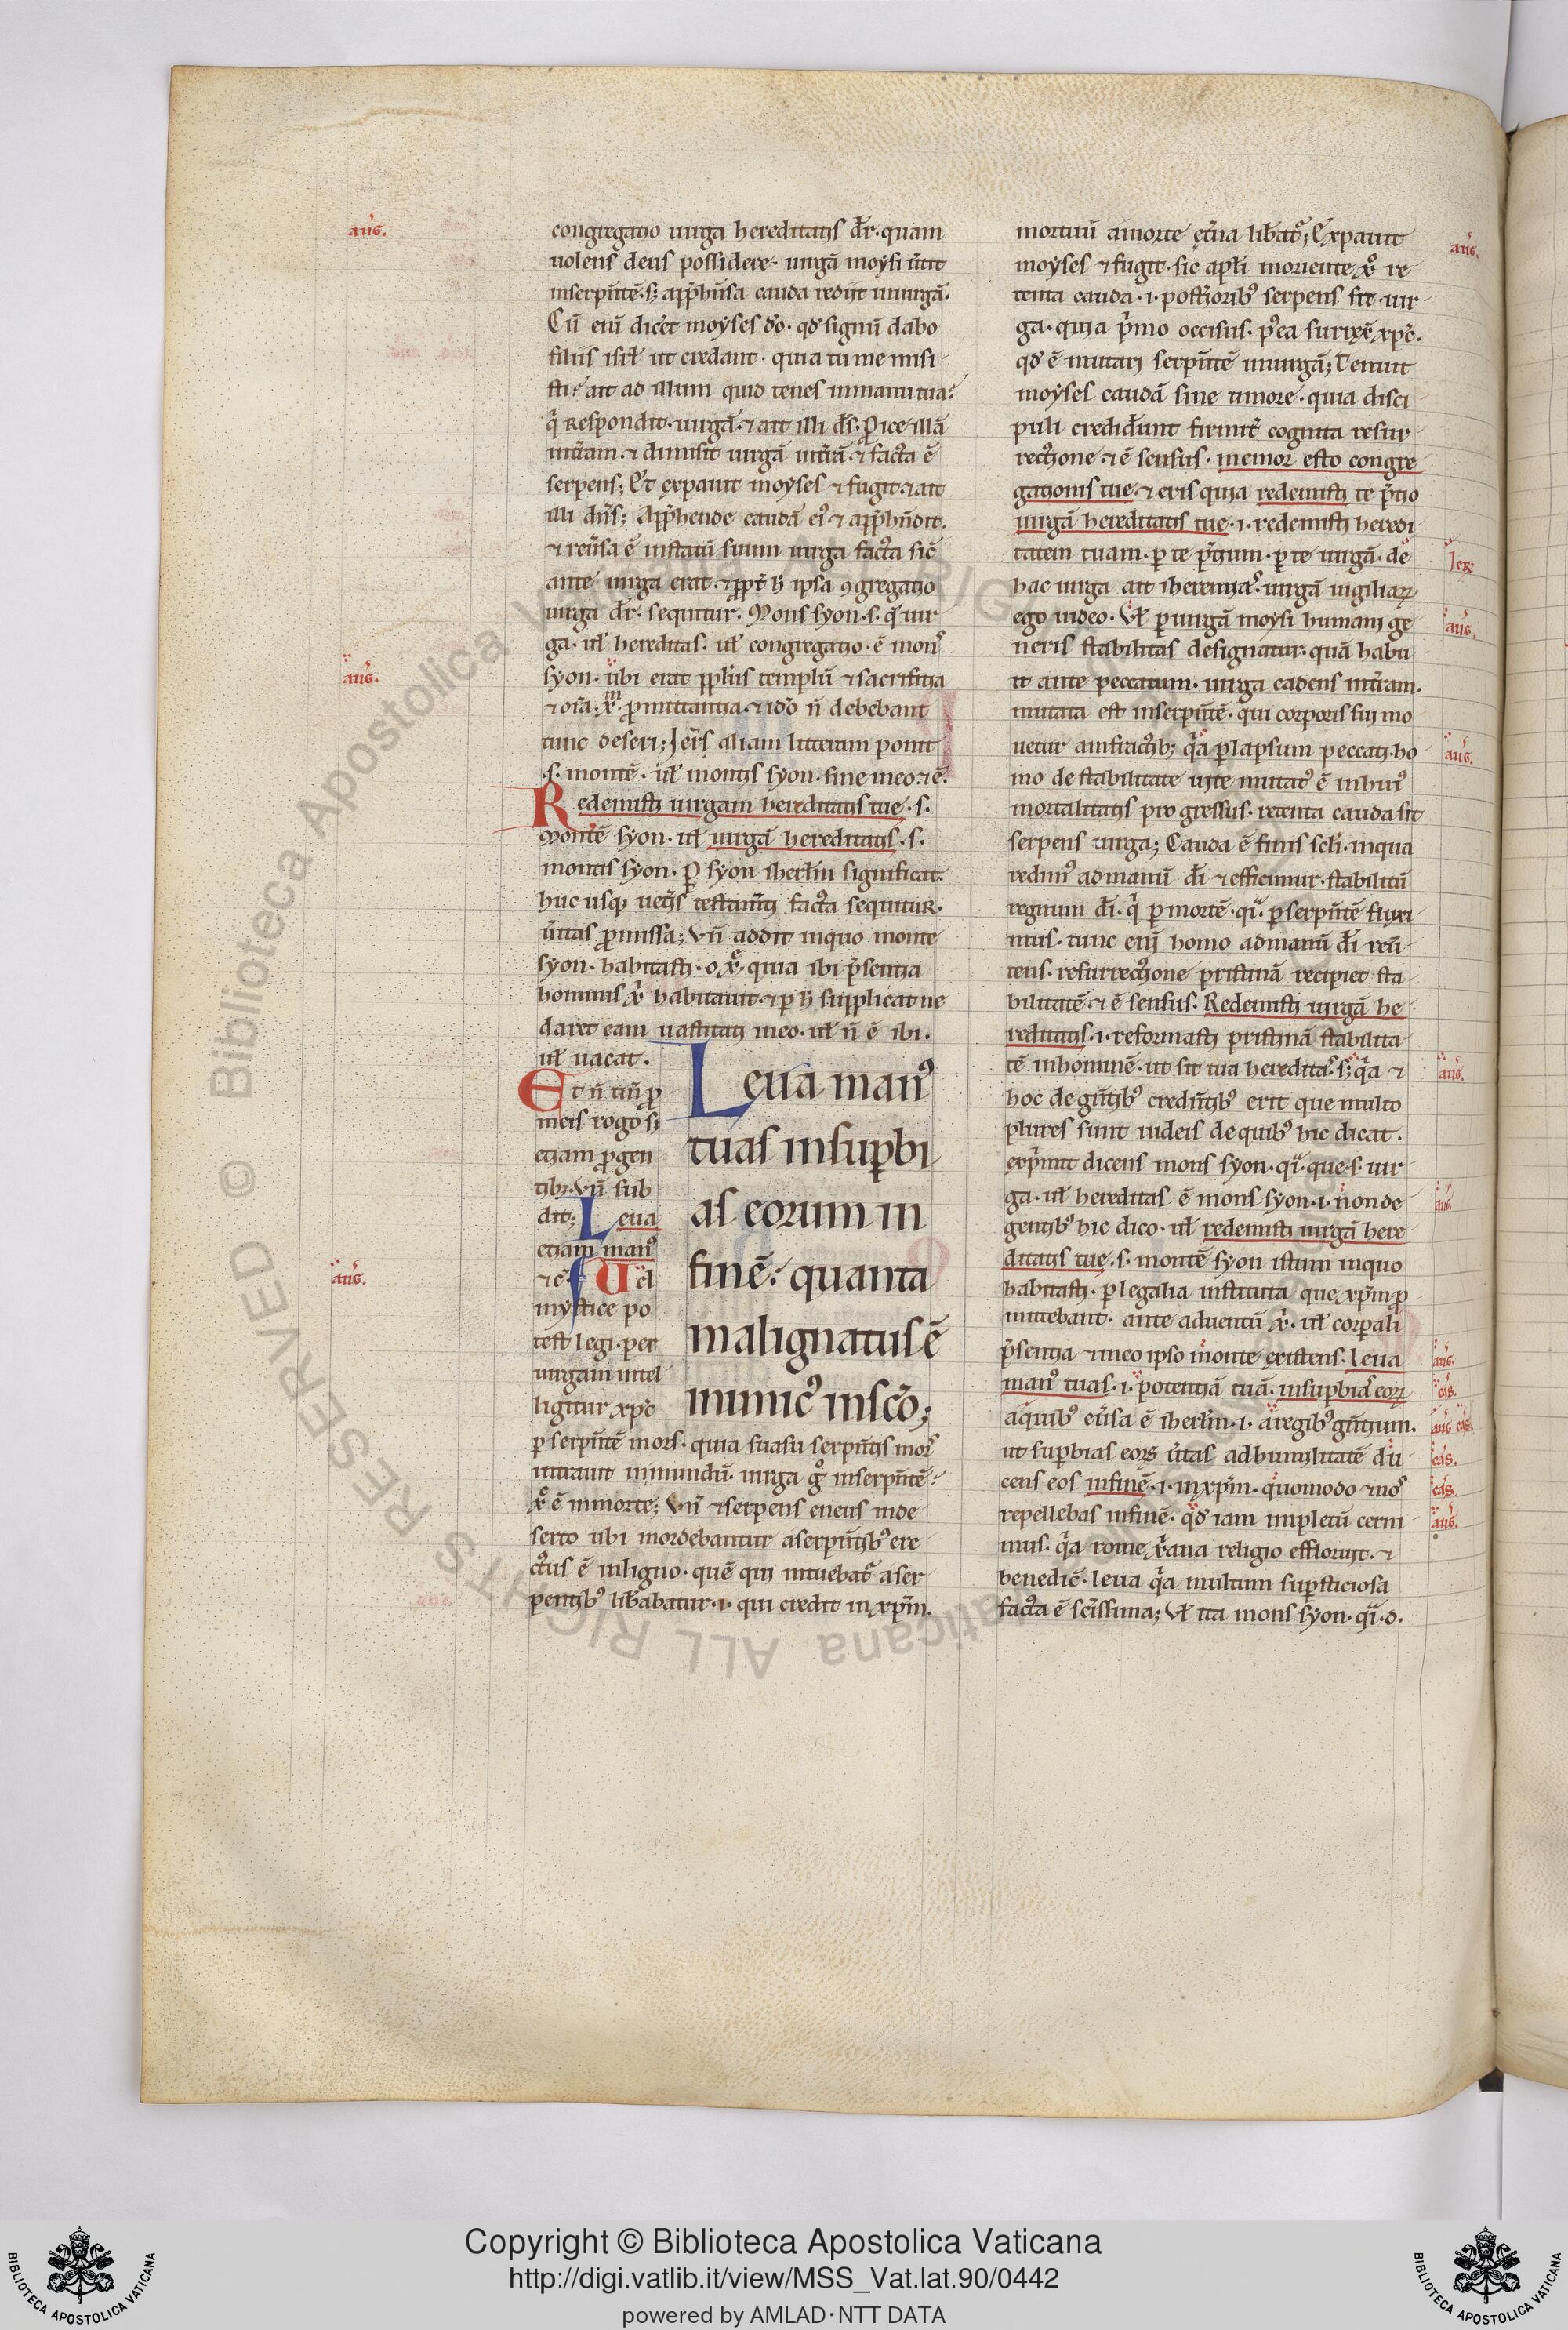 congregatio uirga hereditatis dr̄. quam
uolens deus possidere. uirgā moysi ūtit
in serpn̄tē. s; app̄hn̄sa cauda rediit in uirgā.
Cū eni dicet moyses dō. qd̓ signū dabo
filiis isrl̄ ut credant. quia tu me misi
sti? ait ad illum quid tenes in manu tua?
q̓ respondit. uirgā. ⁊ ait illi ds̄. ꝓice illā
in t̄ram. ⁊ dimisit uirgā in t̄rā. ⁊ facta ē
serpens; Et expauit moyses ⁊ fugit. ⁊ ait
illi dn̄s; App̄hende caudā ei᾽ ⁊ app̄hn̄dit.
⁊ reūsa ē in statū suum uirga facta sic̄
ante uirga erat. ⁊ ꝓpt̄ h̄ ipsa ꝯgregatio
uirga dr̄. sequitur. Mons syon. s. q̄ uir
ga. ul̄ hereditas. ul̄ congregatio. ē mons
syon. ubi erat ppl̄us templū ⁊ sacrificia
⁊ oīa. xm̄. ꝓmittantia. ⁊ idō n̄ debebant
tunc deseri; Ier̄s aliam litteram ponit
.s. montē. ul̄ montis syon. sine in eo. ⁊ c̄.
Redemisti uirgam hereditatis tue. s.
Montē syon. ul̄ uirgā hereditatis. s.
montis syon. P syon iherl̄m significat.
huc usq; uet̄is testam̄ti facta sequitur.
ūitas ꝓmissa; Vn̄ addit in quo monte
syon. habitasti. o xē. quia ibi p̄sentia
hominis xr̄ habitauit. ⁊ p h̄ supplicat ne
daret eam uastitati in eo. ul̄ n̄ ē ibi.
ul̄ uacat.
Et n̄ tm̄ ꝓ
meis rogo s;
etiam ꝓ gen
tib;. Vn̄ sub
dit; Leua
etiam man᾽
⁊ c̄. Vel
mystice po
test legi. per
uirgam intel
ligitur xpc̄
Leua man᾽
tuas in supbi
as eorum in
finē: quanta
malignatus ē
inimic᾽ in scō;
p serpn̄tē mors. quia suasu serpn̄tis mors
intrauit in mundū. uirga g̊ in serpn̄tē:
xc̄ ē in morte; Vn̄ ⁊ serpens eneus in de
serto ubi mordebantur a serpn̄tib᾽ ere
ctus ē in ligno. quē qui intuebat᾽ a ser
pentib᾽ lib̄abatur. i. qui credit in xpm̄.
mortuū a morte et̄na lib̄at᾽; Expauit
moyses ⁊ fugit. sic apl̄i moriente xō re
tenta cauda. i. post̄iorib᾽ serpens fit uir
ga. quia p̄mo occisus. p᾽ea surrexē xpc̄.
qd̓ ē mutari serpn̄tē in uirgā; Tenuit
moyses caudā sine timore. quia disci
puli credidr̄unt firmit̄ cognita resur
rectione. ⁊ ē sensus. memor esto congre
gationis tue. ⁊ eris quia redemisti te p̄tio
uirgā hereditatis tue. i. redemisti heredi
tatem tuam. p te p̄tium. p te uirgā. de
hac uirga ait iheremias. uirgā uigiliaꝝ
ego uideo. Vl̄ p uirgā moysi humani ge
neris stabilitas designatur. quā habu
it ante peccatum. uirga cadens in t̄ram.
mutata est in serpn̄tē. qui corporis sui mo
uetur amfractib; q̄a p lapsum peccati. ho
mo de stabilitate uite mutat᾽ ē in hui᾽
mortalitatis progressus. retenta cauda fit
serpens uirga; Cauda ē finis scl̄i. in qua
redim᾽ ad manū dī ⁊ efficimur. stabilitū
regnum dī. q̓ p mortē. qi. p serpn̄tē fluxi
mus. tunc eni homo ad manū dī reū
tens. resurrectione pristinā recipiet sta
bilitatē. ⁊ ē sensus. Redemisti uirgā he
reditatis. i. reformasti pristinā stabilita
tē in hominē. ut sit tua hereditas. s; q̄a ⁊
hoc de gn̄tib᾽ credn̄tib᾽ erit que multo
plures sunt iudeis de quib᾽ hic dicat.
exp̄mit dicens mons syon. qi. que. s. uir
ga. ul̄ hereditas ē mons syon. i. non de
gentib᾽ hic dico. ul̄ redemisti uirgā here
ditatis tue. s. montē syon istum in quo
habitasti. p legalia instituta que xpm̄ ꝓ
mittebant. ante aduentū xī. ul̄ corpali
p̄sentia ⁊ in eo ipso monte existens. leua
man᾽ tuas. i. potentiā tuā. in supbias eoꝝ
a quib᾽ eūsa ē iherl̄m. i. a regib᾽ gn̄tium.
ut supbias eorꝫ ūtas ad humilitatē du
cens eos in finē. i. in xpm̄. quomodo ⁊ nos
repellebas in finē. qd̓ iam impletū cerni
mus. q̄a rome xr̄ana religio effloruit. ⁊
benedic̄. leua q̄a multum supsticiosa
facta ē scīssima; Vl̄ ita mons syon. qi. d.
aug̓.
aug̓.
aug̓.
aug̓.
Ier
aug̓.
aug̓.
aug̓.
aug̓.
aug̓.
cas̓.
aug̓ cas̓.
cas̓.
cas̓.
aug̓.
© Biblioteca Apostolica Vaticana ALL RIGHTS RESERVED
Copyright © Biblioteca Apostolica Vaticana
http://digi.vatlib.it/view/MSS_Vat.lat.90/0442
powered by AMLAD·NTT DATA
BIBLIOTECA APOSTOLICA VATICANA
BIBLIOTECA APOSTOLICA VATICANA